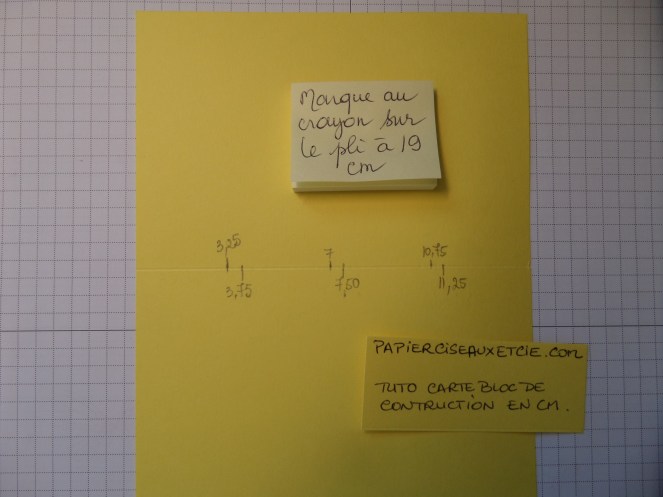 Marque au
crayon sur
le pli à 19
cm
3,25 7 10,75
3,75 7,50 11,25
PAPIERCISEAUXETCIE.COM
TUTO CARTE BLOC DE
CONTRUCTION EN CM.